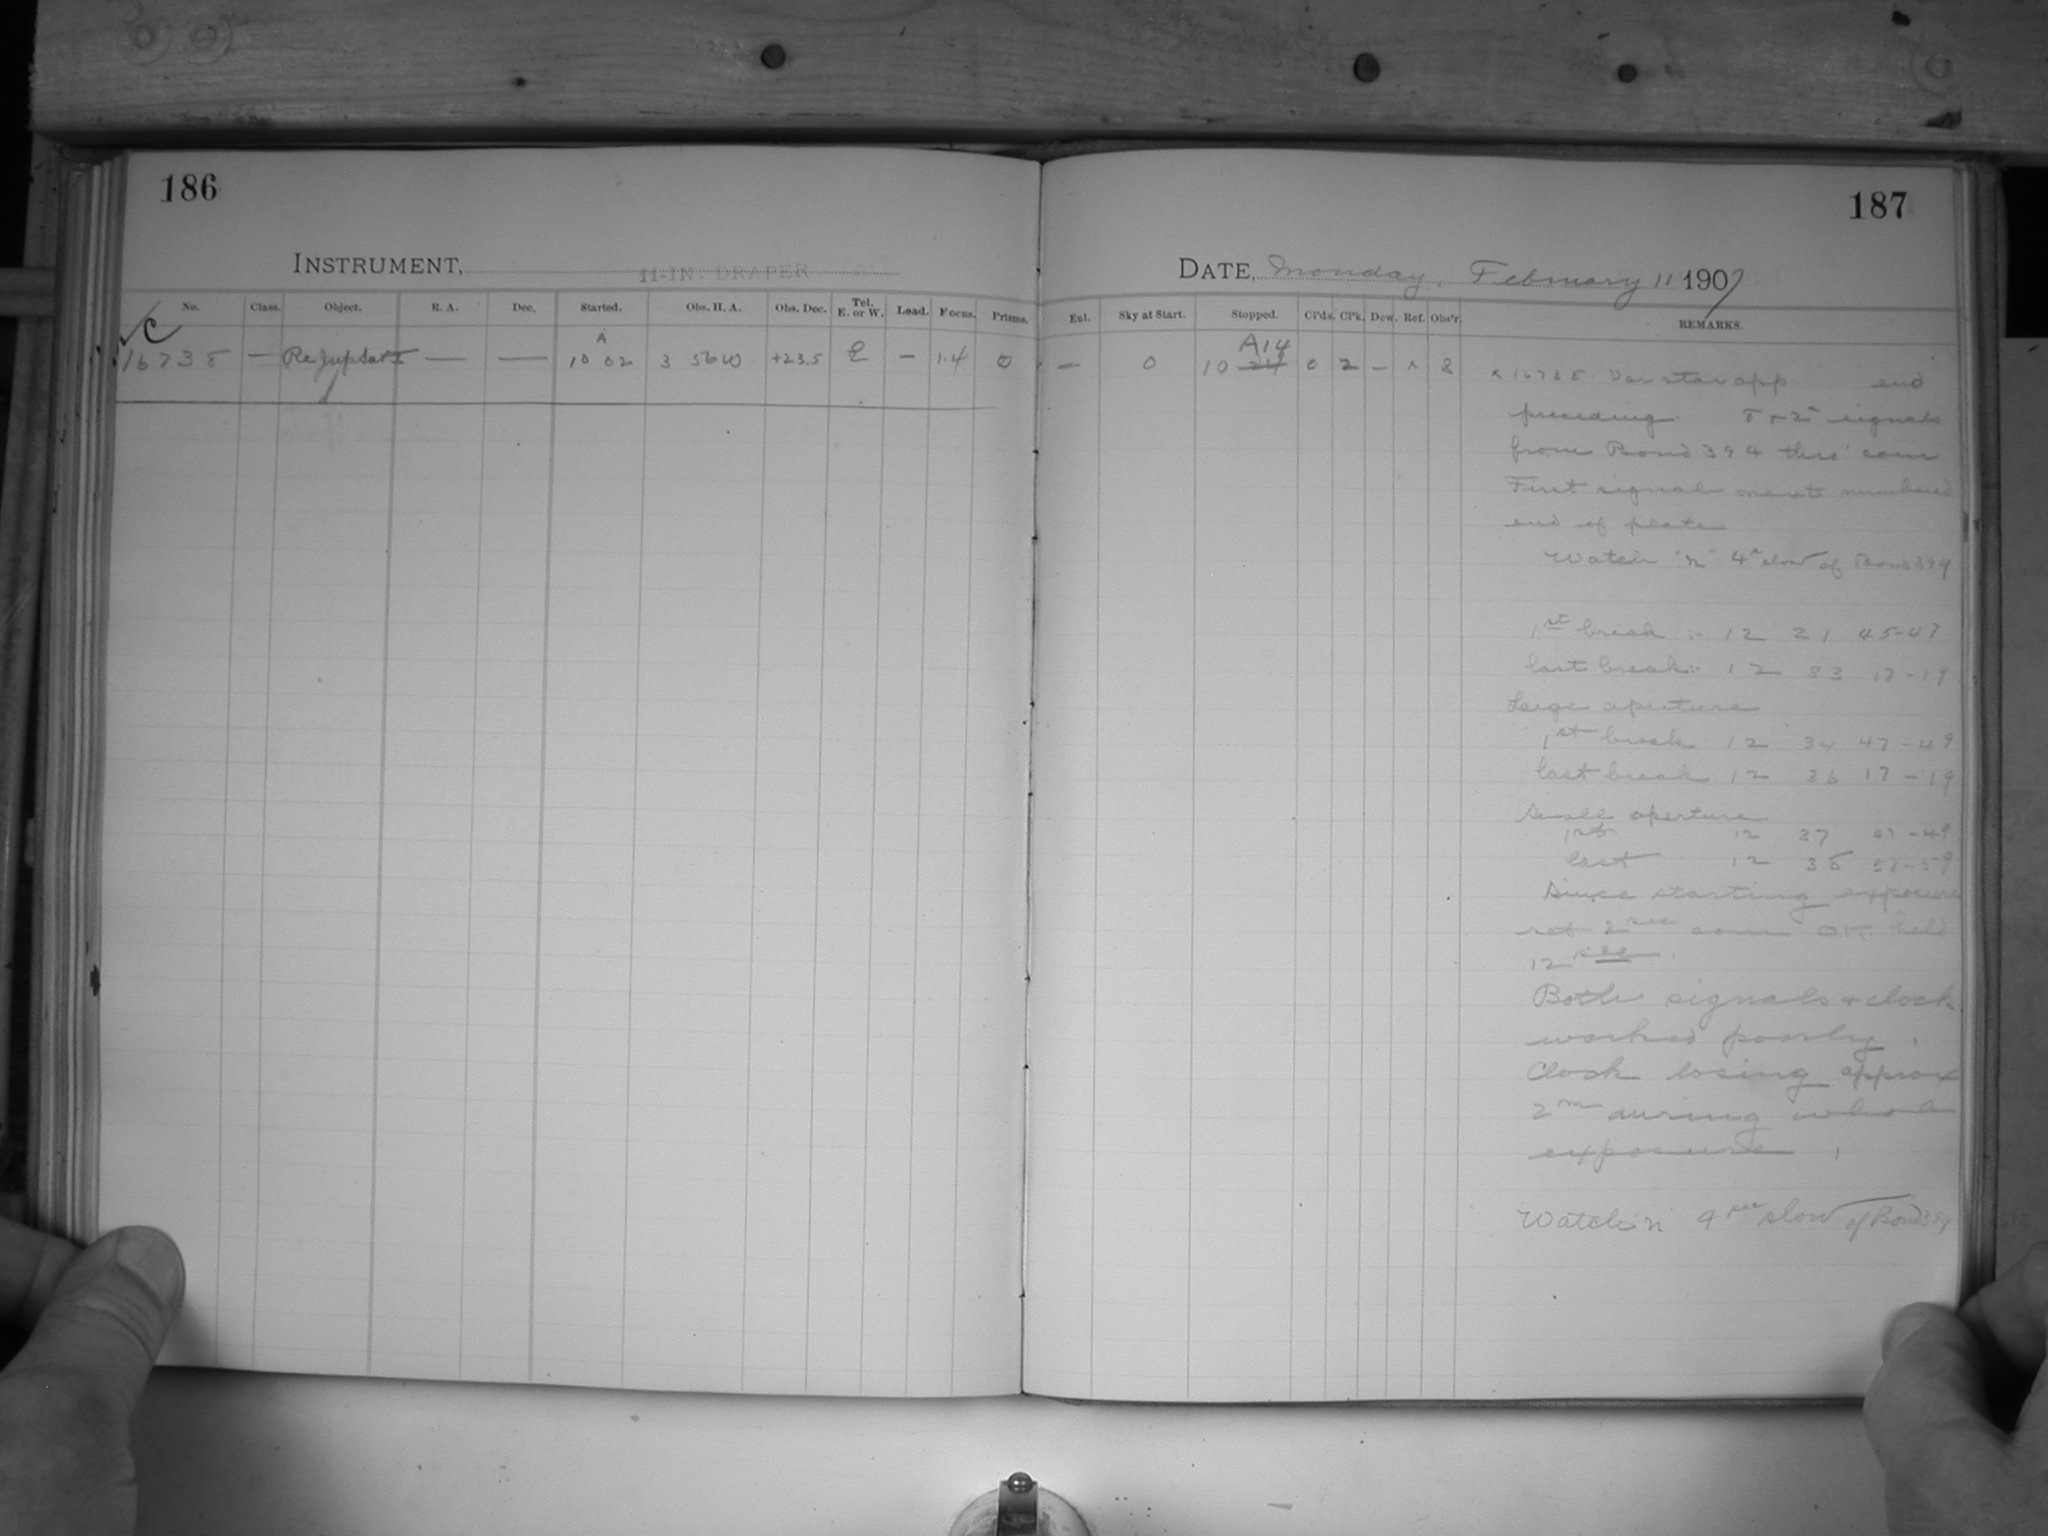 186
INSTRUMENT, 11-IN. DRAPER
No. Class. Object. R. A. Dec. Started. Obs. H. A. Obs. Dec. Tel. E. or W. Load. Focus. Prisms.
C
A
16738 — Re Jup Sat I — — 10 02 3 56 W +23.5 E — 1.4 0
187
DATE, Monday, February 11 1907
Enl. Sky at Start. Stopped. Cl'ds. Cl'k. Dew. Ref. Obs'r. REMARKS.
A 14
— 0 10 24 0 2 — x 8
x 16738. Var star app. end
preceding. signals
from Bond 394 thro' cam
First signal next numbered
end of plate
Watch "n" 4s slow of Bond 394
1st break :- 12 21 45-47
last break :- 12 33 17-19
Large aperture
1st break 12 34 47-49
last break 12 36 17-19
Small aperture
1st 12 37 47-49
last 12 38 57-59
Since starting exposure
not 2 sec cam O.K. held
12 sec.
Both signals & clock
worked poorly.
Clock losing approx
2m during whole
exposure.
Watch n 4 sec slow of Bond 394